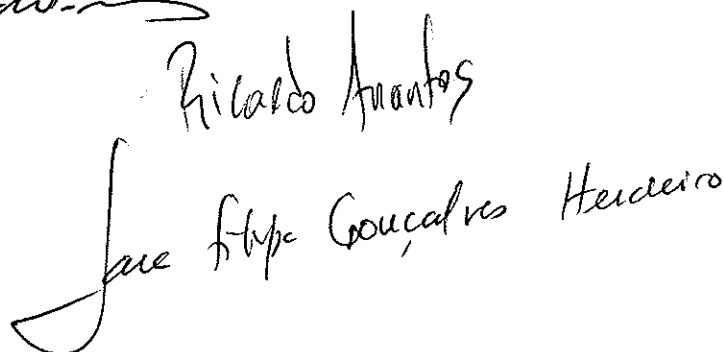 Ricardo
José Filipe Gonçalves Herdeiro